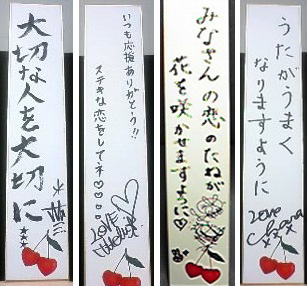 大切な人を大切に
いつも応援ありがとう!!
ステキな恋をしてネ♡♡♡♡
LOVE
みなさんの恋のたねが
花を咲かせますように♡
うたがうまく
なりますように
Love